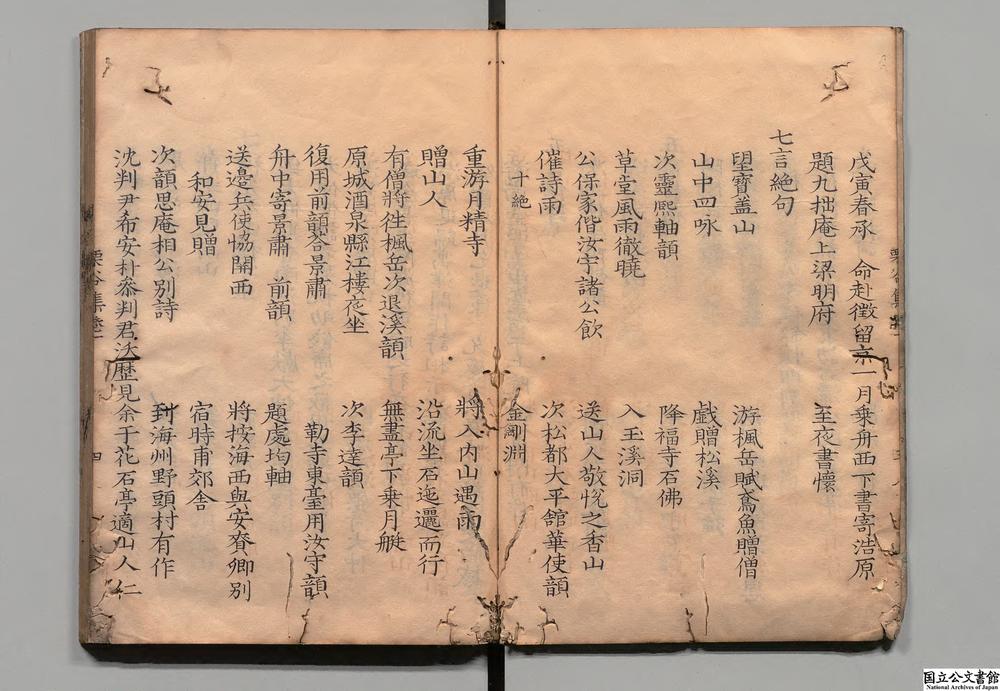 戊寅春承　命赴徵留京一月乗舟西下書寄浩原
題九拙庵上梁明府　至夜書懷
七言絶句
望寶盖山　游楓岳賦鳶魚贈僧
山中四咏　戯贈松溪
次靈熈軸韻　降福寺石佛
草堂風雨徹曉　入玉溪洞
公保家偕汝守諸公飲　送山人敬悅之香山
催詩雨　次松都大平舘華使韻
十絶　金剛淵
重游月精寺　將入内山遇雨
贈山人　沿流坐石迤邐而行
有僧將徃楓岳次退溪韻　無盡亭下乗月艇
原城酒泉縣江樓夜坐　次李達韻
復用前韻荅景肅　勒寺東臺用汝守韻
舟中寄景肅　前韻　題處均軸
送邊兵使恊閫西　將按海西與安齊卿別
和安見贈　宿時甫郊舎
次韻思庵相公別詩　到海州野頭村有作
沈判尹希安朴叅判君沃歴見余于花石亭適山人仁
栗谷集卷一
四
国立公文書館
National Archives of Japan